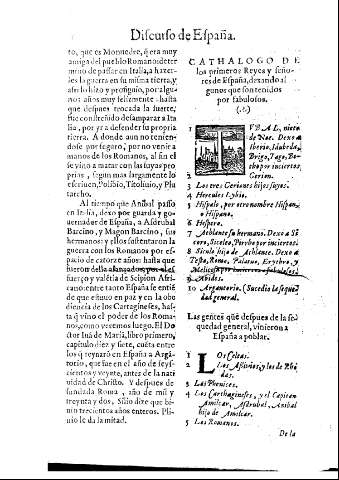 Discurso de España.
to, que es Monuedre, q̃ era muy
amiga del pueblo Romano deter
mino de passar en Italia, a hazer-
les la guerra en su misma tierra, y
assi lo hizo y prosiguio, por algu-
nos años muy felizmente: hasta
que despues trocada la suerte,
fue constreñido desamparar a Ita
lia, por yr a defender su propria
tierra. A donde aun no tenien-
dose por seguro, por no venir a
manos de los Romanos, al fin se
le vino a matar con las suyas pro
prias, segun mas largamente lo
escriuen, Polibio, Titoliuio, y Plu
tarcho.
Al tiempo que Anibal passò
en Italia, dexo por guarda y go-
uernador de España, a Asdrubal
Barcino, y Magon Barcino, sus
hermanos: y ellos sustentaron la
guerra con los Romanos por es-
pacio de catorze años hasta que
fueron della alançados, por el es-
fuerço y valētia de Scipion Afri-
cano: entre tanto España se entiē
de que estuuo en paz y en la obe
diencia de los Cartagineses, has-
ta q̃ vino el poder de los Roma-
nos, como veremos luego. El Do
ctor Iuā de Maria, libro primero,
capitulo diez y siete, cuēta entre
los q̃ reynarō en España a Argā-
torio, que fue en el año de seys-
cientos y veynte, antes de la nati
uidad de Christo. Y despues de
fundada Roma, año de mil y
treynta y dos, Silio dize que bi-
uio trecientos años enteros. Pli-
nio le da la mitad.
CATHALOGO DE
los primeros Reyes y seño-
res de España, dexando al
gunos que son tenidos
por fabulosos.
(.?.)
1 TVBAL, nieto
de Noe. Dexo a
Iberio, Idubeda,
Brigo, Tago, Be-
tho por inciertos.
2 Gerion.
3 Los tres Geriones hijos suyos.
4 Hercules Lybio.
5 Hispalo, por otro nombre Hispan
o Hispano.
6 Hespero.
7 Athlante su hermano. Dexo a Si
coro, Siceleo, Pirrho por inciertos.
8 Siculo hijo de Athlante. Dexo a
Testa, Romo, Palatuo, Erythro, y
Melicola por inciertos o fabulosos.
9 Abides.
10 Argantorio. (Sucedio la seque
dad general.
Las gentes que despues de la se
quedad general, vinieron a
España a poblar.
1 Los Celtas.
2 Los Assirios, y los de Rho
das.
3 Los Phenices.
4 Los Carthagineses, y el Capitan
Amilcar, Asdrubal, Anibal
hijo de Amilcar.
5 Los Romanos.
De la